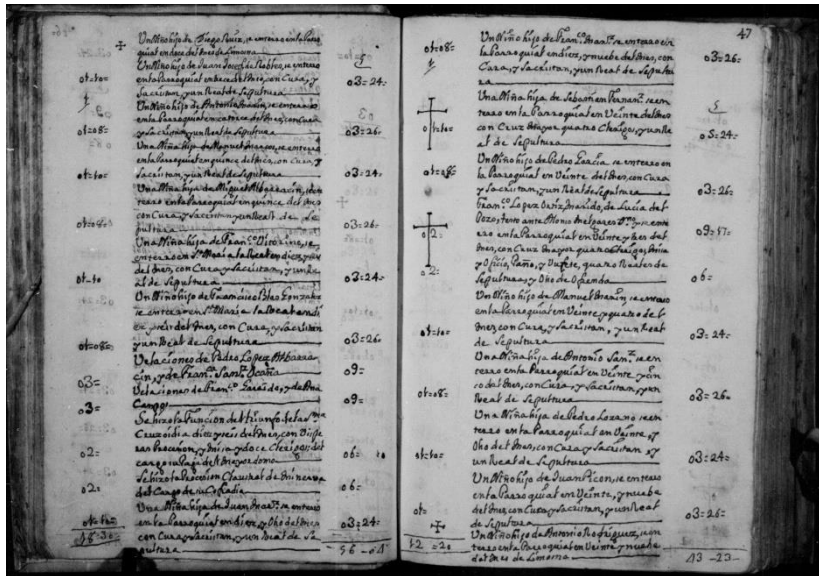 Un Niño hijo de Diego Ruiz, se enterro en la Parro
quial en doce del mes de Limosna
Un Niño hijo de Juan Joseph de Robles, se enterro
ot=to= en la Parroquial en trece del mes, con Cura, y 03=24=
Sacristan, y un Real de Sepultura
Un Niño hijo de Antonio Marin, se enterro
en la Parroquial en catorce del mes, con Cura
ot=08= y Sacristan, y un Real de Sepultura 03=26=
Una Niña hija de Manuel se enterro
en la Parroquial en quince del mes, con Cura, y
ot=to= Sacristan, y un Real de Sepultura 03=24=
Una Niña hija de Miguel Albarracin, se en
terro en la Parroquial en quince del mes
con Cura, y Sacristan y un Real de Se
ot=08= pultura 03=26=
Una Niña hija de Fran.co se
enterro en S.ta Maria la Real en diez, y seis
del mes, con Cura, y Sacristan, y un Re
ot=to al de Sepultura 03=24=
Un Niño hijo de Francisco Blas Gonzalez
se enterro en S.ta Maria la Real en di
ez y seis del mes, con Cura, y Sacristan
ot=08= y un Real de Sepultura 03=26=
Velaciones de Pedro Lopez Albarra
03= cin, y de Fran.ca Sanz Ocaña 09=
Velaciones de Fran.co y de Ana
03= Campos 09=
Se hizo la Función del triunfo de la S.ma
Cruz oi dia diez y seis del mes, con Vispe
ras Procesion, y Misa, y doce Clerigos del
02= cargo Mayordomo 06=
Se hizo la Procesion Claustral de Minerva
02= del Cargo de su Cofradia 06=
Una Niña hija de Juan se enterro
en la Parroquial en diez, y Ocho del mes
ot=to= con Cura y Sacristan, y un Real de Se 03=24=
18=30= pultura 56-01
47
Un Niño hijo de Fran.co se enterro en
ot=08= la Parroquial en diez, y nuebe del mes, con 03=26=
Cura, y Sacristan, y un Real de Sepultu
ra
Una Niña hija de Sebastian Fernan.z se en
terro en la Parroquial en Veinte del mes
ot=to= con Cruz Mayor quatro Clerigos, y un Re 05=24=
al de Sepultura
Un Niño hijo de Pedro Garcia se enterro en
ot=08= la Parroquial en Veinte del mes con Cura
y Sacristan, y un Real de Sepultura 03=26=
Fran.co Lopez Ortiz, Marido, de Lucia del
Pozo, testo ante Alonso se ent
02= erro en la Parroquial en Veinte y tres del 09=17=
mes, con Cruz Mayor quatro Clerigos, Misa
y Oficio, Paño, y Bufete, quatro Reales de
02= Sepultura, y Ocho de Ofrenda 06=
Un Niño hijo de Manuel Marin, se enterro
en la Parroquial en Veinte, y quatro del
ot=to= mes, con Cura, y Sacristan, y un Real 03=24=
de Sepultura
Una Niña hija de Antonio Sanz, se en
terro en la Parroquial en Veinte y cin
co del mes, con Cura, y Sacristan, y un
ot=08= Real de Sepultura 03=26=
Una Niña hija de Pedro Lozano se en
terro en la Parroquial en Veinte, y
ot=to= Ocho del mes, con Cura, y Sacristan y 03=24=
un Real de Sepultura
Un Niño hijo de Juan Picon, se enterro
en la Parroquial en Veinte, y nuebe
ot= del mes, con Cura, y Sacristan, y un Real 03=26=
de Sepultura
Un Niño hijo de Antonio Rodriguez, se en
12=20 terro en la Parroquial en Veinte y nuebe 43-23-
del mes de Limosna